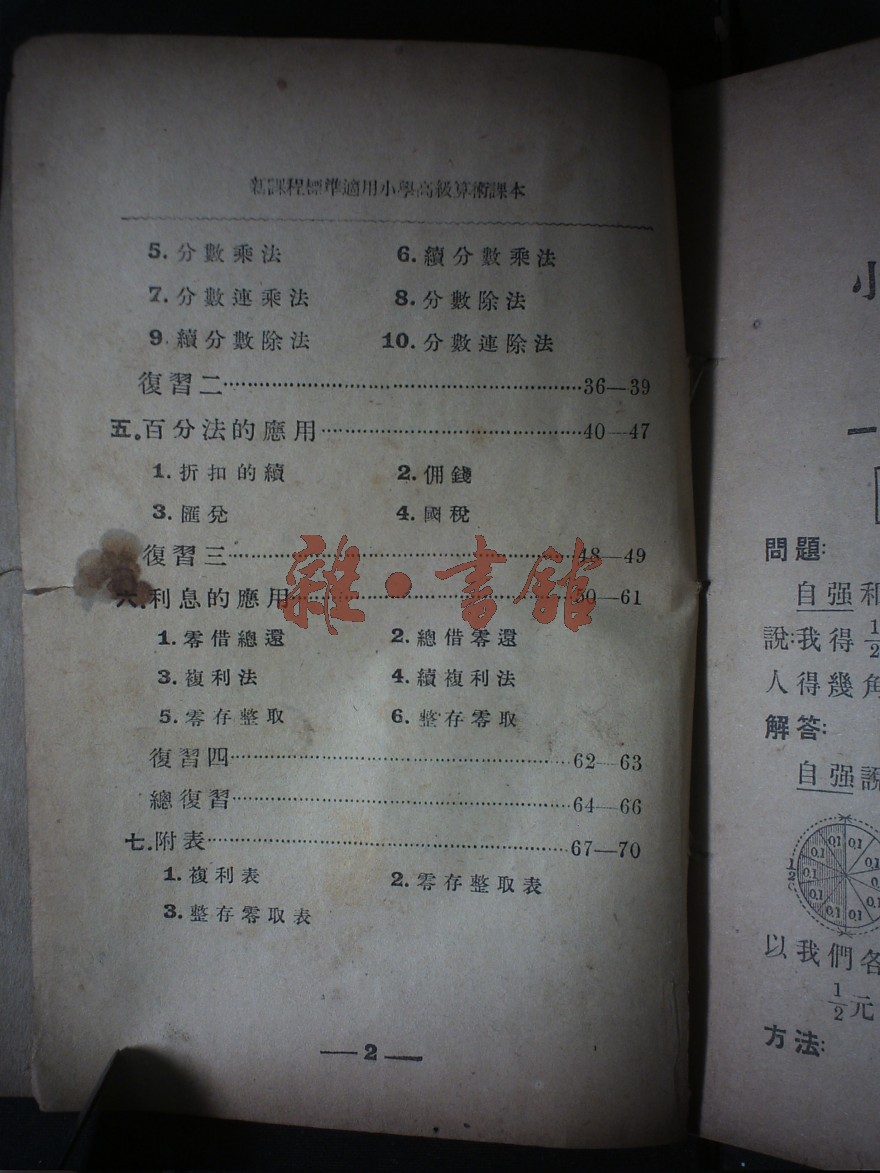 新課程標準適用小學高級算術課本
5. 分數乘法 6. 續分數乘法
7. 分數連乘法 8. 分數除法
9. 續分數除法 10. 分數連除法
復習二……36—39
五。百分法的應用……40—47
1. 折扣的續 2. 佣錢
3. 匯兌 4. 國稅
復習三……48—49
六.利息的應用……50—61
1. 零借總還 2. 總借零還
3. 複利法 4. 續複利法
5. 零存整取 6. 整存零取
復習四……62—63
總復習……64—66
七.附表……67—70
1. 複利表 2. 零存整取表
3. 整存零取表
—2—
雜·書館
小
一
問題:
自强和
說:我得 1/2
人得幾角
解答:
自强說
1/2
0.1 0.1 0.1 0.1 0.1 0.1 0.1 0.1 0.1
以我們各
1/2元
方法: